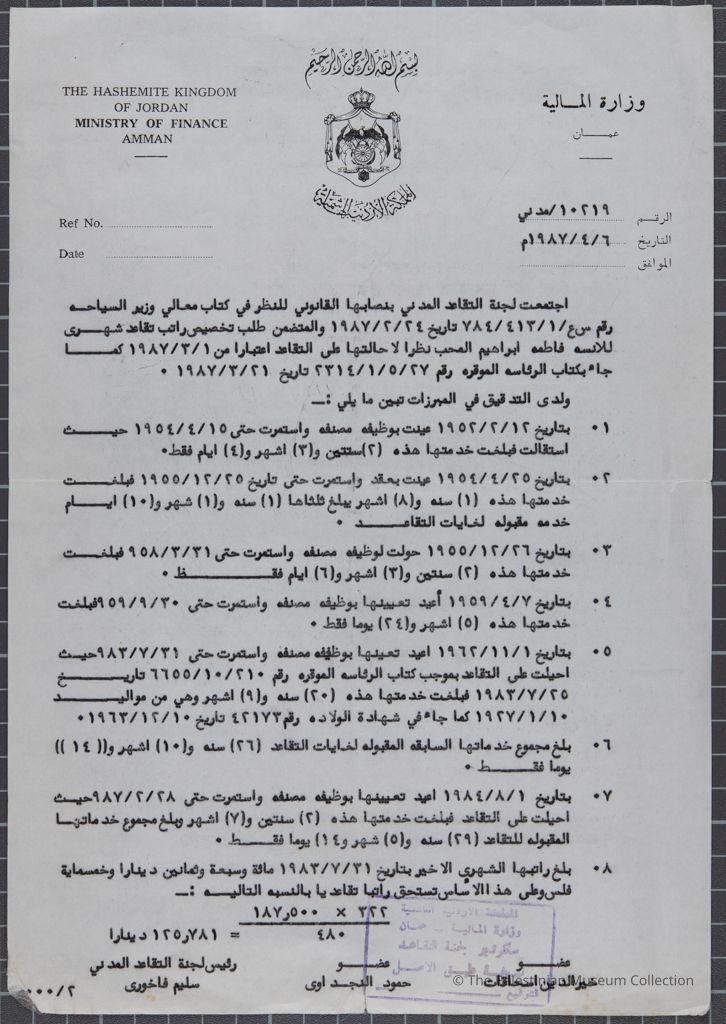 بسم الله الرحمن الرحيم
THE HASHEMITE KINGDOM
OF JORDAN
MINISTRY OF FINANCE
AMMAN
وزارة المـالية
عمـــان
المملكة الأردنية الهاشمية
Ref No.
Date
الرقـم ١٠٢١٩/مدني
التاريخ ١٩٨٧/٤/٦م
الموافق
اجتمعت لجنة التقاعد المدني بنصابها القانوني للنظر في كتاب معالي وزير السياحـه
رقم س ع/٧٨٤/٤١٣/١ تاريخ ١٩٨٧/٢/٢٤ والمتضمن طلب تخصيص راتب تقاعد شهـرى
للانسه فاطمه ابراهيم المحب نظرا لاحالتها على التقاعد اعتبارا من ١٩٨٧/٣/١ كمـــا
جاء بكتاب الرئاسه الموقره رقم ٢٣١٤/١/٥/٢٧ تاريخ ١٩٨٧/٣/٢١ ٠
ولدى التدقيق في المبرزات تبين ما يلي :ــ
٠١ بتاريخ ١٩٥٢/٢/١٢ عينت بوظيفه مصنفه واستمرت حتى ١٩٥٤/٤/١٥ حيـــث
استقالت فبلغت خدمتها هذه (٢)سنتين و(٣) اشهر و(٤) ايام فقط٠
٠٢ بتاريخ ١٩٥٤/٤/٢٥ عينت بعقد واستمرت حتى تاريخ ١٩٥٥/١٢/٢٥ فبلغـــت
خدمتها هذه (١) سنه و(٨) اشهر يبلغ ثلثاها (١) سنه و(١) شهر و(١٠) ايــام
خدمه مقبوله لغايات التقاعـــد ٠
٠٣ بتاريخ ١٩٥٥/١٢/٢٦ حولت لوظيفه مصنفه واستمرت حتى ٩٥٨/٣/٣١ فبلغـــت
خدمتها هذه (٢) سنتين و(٣) اشهر و(٦) ايام فقـــــظ ٠
٠٤ بتاريخ ١٩٥٩/٤/٧ أعيد تعيينها بوظيفه مصنفه واستمرت حتى ٩٥٩/٩/٣٠فبلغت
خدمتها هذه (٥) اشهر و(٢٤) يوما فقط ٠
٠٥ بتاريخ ١٩٦٢/١١/١ اعيد تعيينها بوظيفه مصنفه واستمرت حتى ٩٨٣/٧/٣١حيث
احيلت على التقاعد بموجب كتاب الرئاسه الموقره رقم ٦٦٥٥/١٠/٢١٠ تاريـــخ
١٩٨٣/٧/٢٥ فبلغت خدمتها هذه (٢٠) سنه و(٩) اشهر وهي من مواليـــد
١٩٢٧/١/١٠ كما جاء في شهادة الولاده رقم٤٢١٧٣ تاريخ ١٩٦٣/١٢/١٠٠
٠٦ بلغ مجموع خدماتها السابقه المقبوله لغايات التقاعد (٢٦) سنه و(١٠) اشهر و(( ١٤ ))
يوما فقـــط ٠
٠٧ بتاريخ ١٩٨٤/٨/١ اعيد تعيينها بوظيفه مصنفه واستمرت حتى ٩٨٧/٢/٢٨حيث
احيلت على التقاعد فبلغت خدمتها هذه (٢) سنتين و(٧) اشهر وبلغ مجموع خدماتهـا
المقبوله للتقاعد (٢٩) سنه و(٥) شهر و(١٤) يوما فقـــط ٠
٠٨ بلغ راتبها الشهري الاخير بتاريخ ١٩٨٣/٧/٣١ مائة وسبعة وثمانين دينارا وخمسماية
فلس وعلى هذا الاساس تستحق راتبا تقاعديا بالنسبه التاليـــه :ــ
٣٢٢ × ٥٠٠ر١٨٧
٤٨٠ = ٧٨١ر١٢٥ دينارا
المملكة الاردنية الهاشمية
وزارة المالية ــ عمان
سكرتير لجنة التقاعد
طبق الاصل
التوقيع
عضــو عضــو رئيس لجنة التقاعد المدني
خيرالدين حمود النجداوى سليم فاخورى
٠٠٠/٢
© The Palestinian Museum Collection